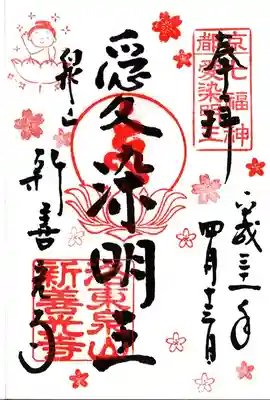 奉拝
京都
七福神
愛染明王
平成三十一年
四月十三日
愛染明王
泉山
新善光寺
洛東泉山
新善光寺